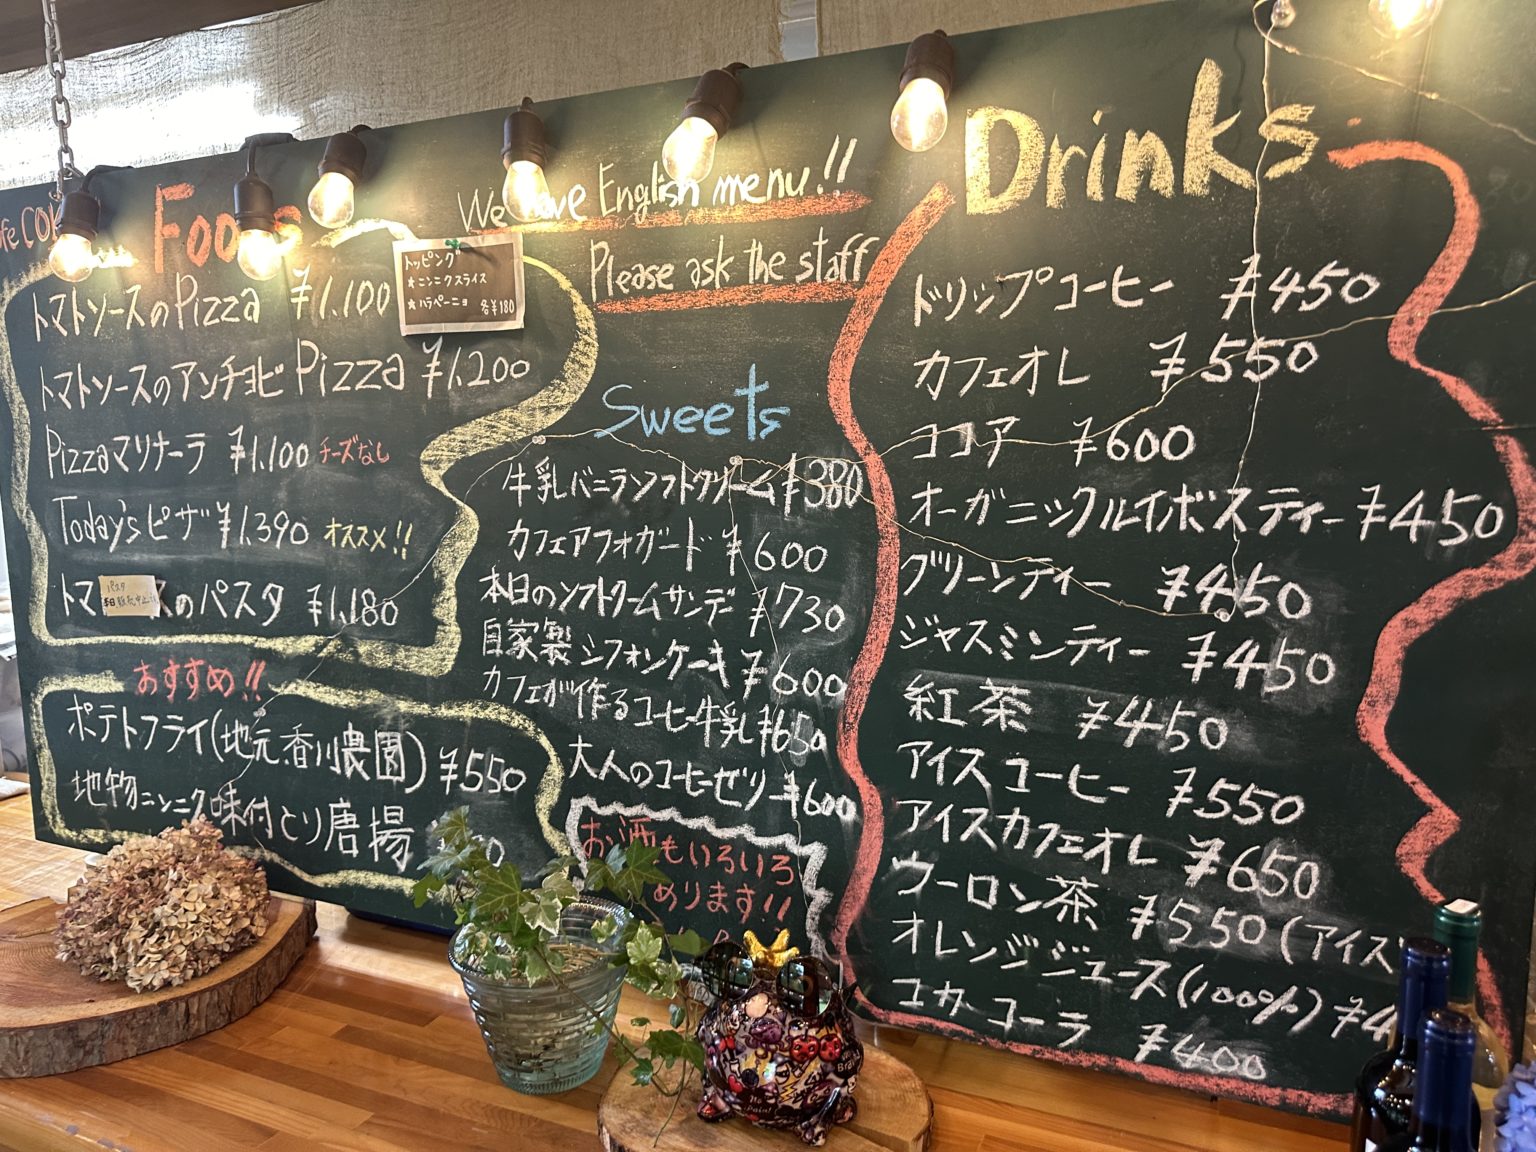 Foods
トッピング
★ニンニクスライス
★ハラペーニョ
各¥180
トマトソースのPizza ¥1.100
トマトソースのアンチョビPizza ¥1.200
Pizzaマリナーラ ¥1.100 チーズなし
Today'sピザ ¥1.390 オススメ!!
トマ のパスタ ¥1.180
パスタ
おすすめ!!
ポテトフライ(地元香川農園) ¥550
地物ニンニク味付とり唐揚
We have English menu!!
Please ask the staff
Sweets
牛乳バニラソフトクリーム ¥380
カフェアフォガード ¥600
本日のソフトクームサンデー ¥730
自家製シフォンケーキ ¥600
カフェが作るコーヒー牛乳 ¥650
大人のコーヒーゼリー ¥600
お酒もいろいろ
めります!!
Drinks
ドリップコーヒー ¥450
カフェオレ ¥550
ココア ¥600
オーガニックルイボスティー ¥450
グリーンティー ¥450
ジャスミンティー ¥450
紅茶 ¥450
アイスコーヒー ¥550
アイスカフェオレ ¥650
ウーロン茶 ¥550(アイス
オレンジジュース(100%) ¥4
コカコーラ ¥400